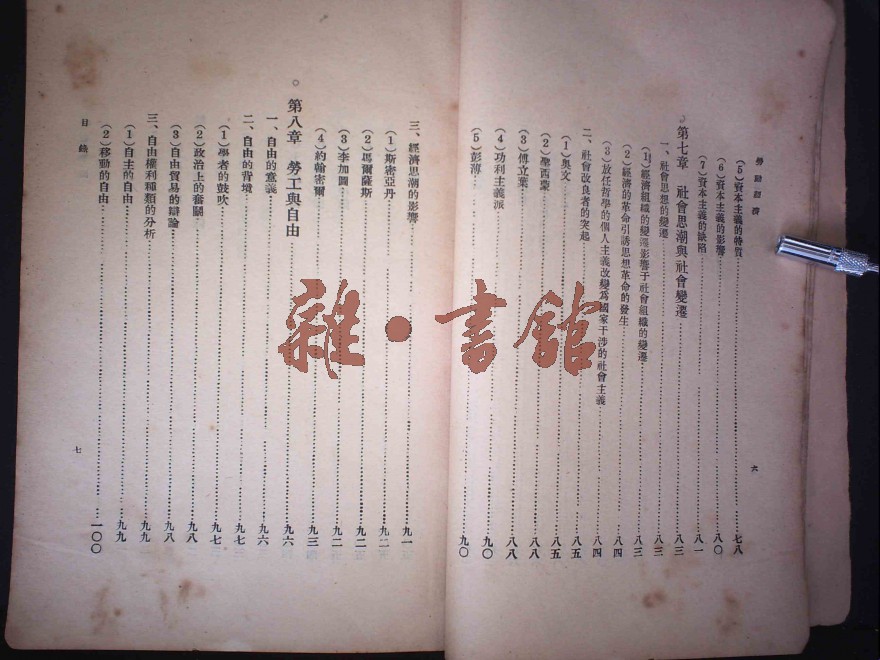 勞動經濟
(5)資本主義的特質……七八
(6)資本主義的影響……八〇
(7)資本主義的缺陷……八一
第七章 社會思潮與社會變遷……八三
一、社會思想的變遷……八三
(1)經濟組織的變遷影響于社會組織的變遷……八三
(2)經濟的革命引誘思想革命的發生……八四
(3)放任哲學的個人主義改變爲國家干涉的社會主義……八四
二、社會改良者的突起……八五
(1)奧文……八五
(2)聖西蒙……八八
(3)傅立葉……八八
(4)功利主義派……九〇
(5)彭薄……九〇
六
三、經濟思潮的影響……九一
(1)斯密亞丹……九二
(2)馬爾薩斯……九二
(3)李加圖……九二
(4)約翰密爾……九三
第八章 勞工與自由……九六
一、自由的意義……九六
二、自由的背境……九七
(1)學者的鼓吹……九七
(2)政治上的奮鬭……九八
(3)自由貿易的辯論……九八
三、自由權利種類的分析……九九
(1)自主的自由……九九
(2)移動的自由……一〇〇
目錄
七
雜·書館